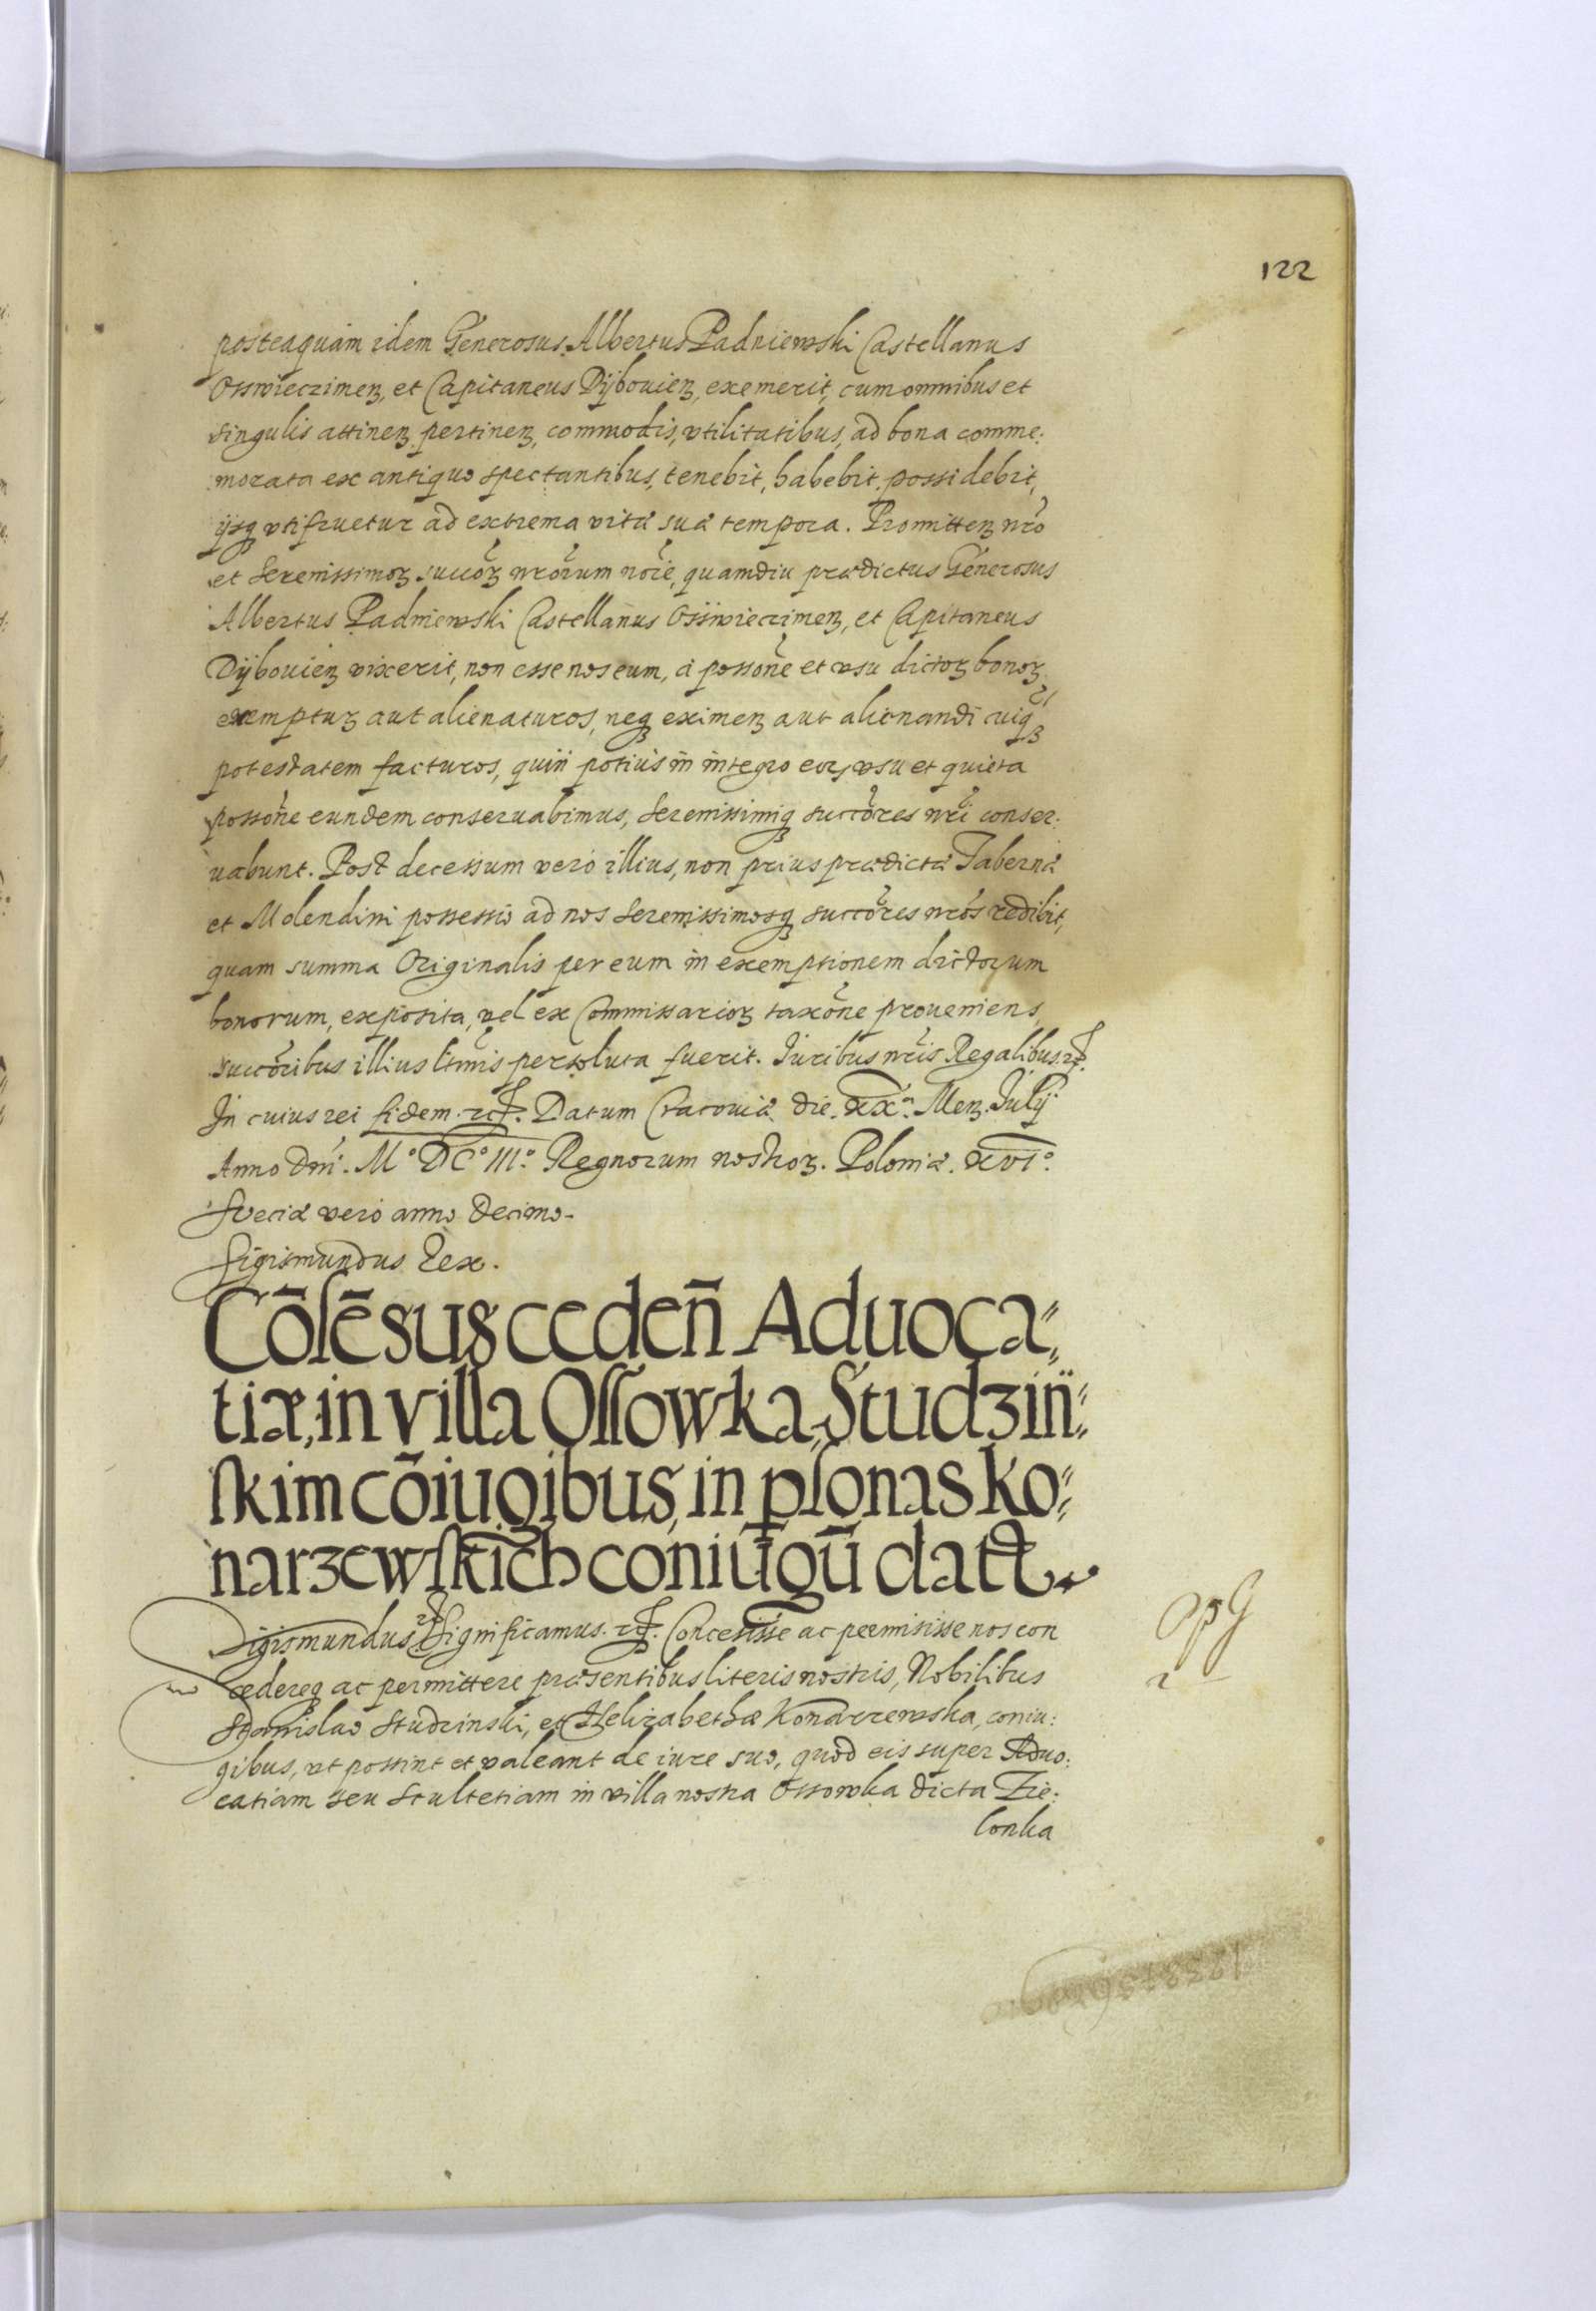 122
posteaquam idem Generosus Albertus Padniewski Castellanus
Osswieczimenꝫ, et Capitaneus Dijbouienꝫ, exemerit, cum omnibus et
singulis attinenꝫ pertinenꝫ, commodis, vtilitatibus, ad bona comme:
morata ex antiquo spectantibus, tenebit, habebit, possidebit,
ijsqꝫ vtifruetur ad extrema vitæ suæ tempora. Promittenꝫ nr̃o
et Serenissimoꝝ succõꝝ nr̃orum nõie, quamdiu prædictus Generosus
Albertus Padniewski Castellanus Osswieczimenꝫ, et Capitaneus
Dijbouienꝫ vixerit, non esse nos eum, à possõne et vsu dictoꝝ bonoꝝ
exempturꝫ aut alienaturos, neqꝫ eximenꝫ aut alienandi cuiqꝫ
potestatem facturos, quin potius in integro eoꝝ vsu et quieta
possõne eundem conseruabimus, Serenissimiqꝫ succõres nr̃i conser:
uabunt. Post decessum vero illius, non prius prædictæ Tabernæ
et Molendini possessio ad nos Serenissimosqꝫ succõres nr̃os redibit,
quam summa Originalis per eum in exemptionem dictorum
bonorum, exposita, vel ex Commissarioꝝ taxõne proueniens,
succõribus illius ltimis persoluta fuerit. Iuribus nr̃is Regalibus. etc.
In cuius rei fidem. etc. Datum Cracouiæ die. XXᵃ. Menꝫ. Iulij.
Anno Dñi. M° DC° III° Regnorum nostroꝝ. Poloniæ. XVI°.
Sveciæ vero anno Decimo.
Sigismundus Rex.
Cõsẽsus cedeñ Aduoca„
tiæ, in villa Ossowka, Studziñ„
skim cõiugibus, in psonas Ko„
narzewskich coniugũ datt.
Sigismundus etc. Significamus. etc. Concessisse ac permisisse nos con
cedereqꝫ ac permittere præsentibus literis nostris, Nobilibus
Stanislao Studzinski, et Helizabethæ Konarzewska, coniu:
gibus, vt possint et valeant de iure suo, quod eis super Aduo:
catiam seu Scultetiam in villa nostra Ossowka dicta Zie:
lonka